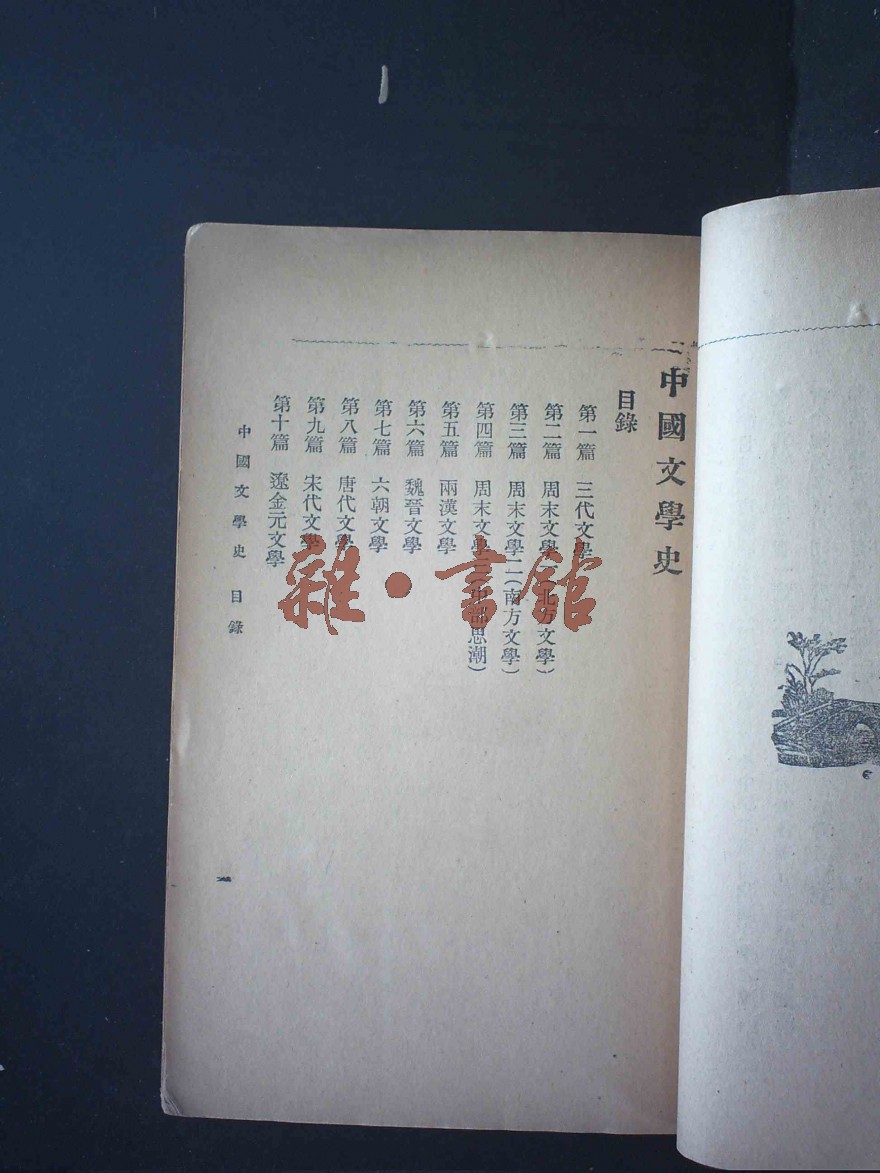 中國文學史
目錄
第一篇 三代文學
第二篇 周末文學一(北方文學)
第三篇 周末文學二(南方文學)
第四篇 周末文學三(中部思潮)
第五篇 兩漢文學
第六篇 魏晉文學
第七篇 六朝文學
第八篇 唐代文學
第九篇 宋代文學
第十篇 遼金元文學
中國文學史 目錄
雜·書館